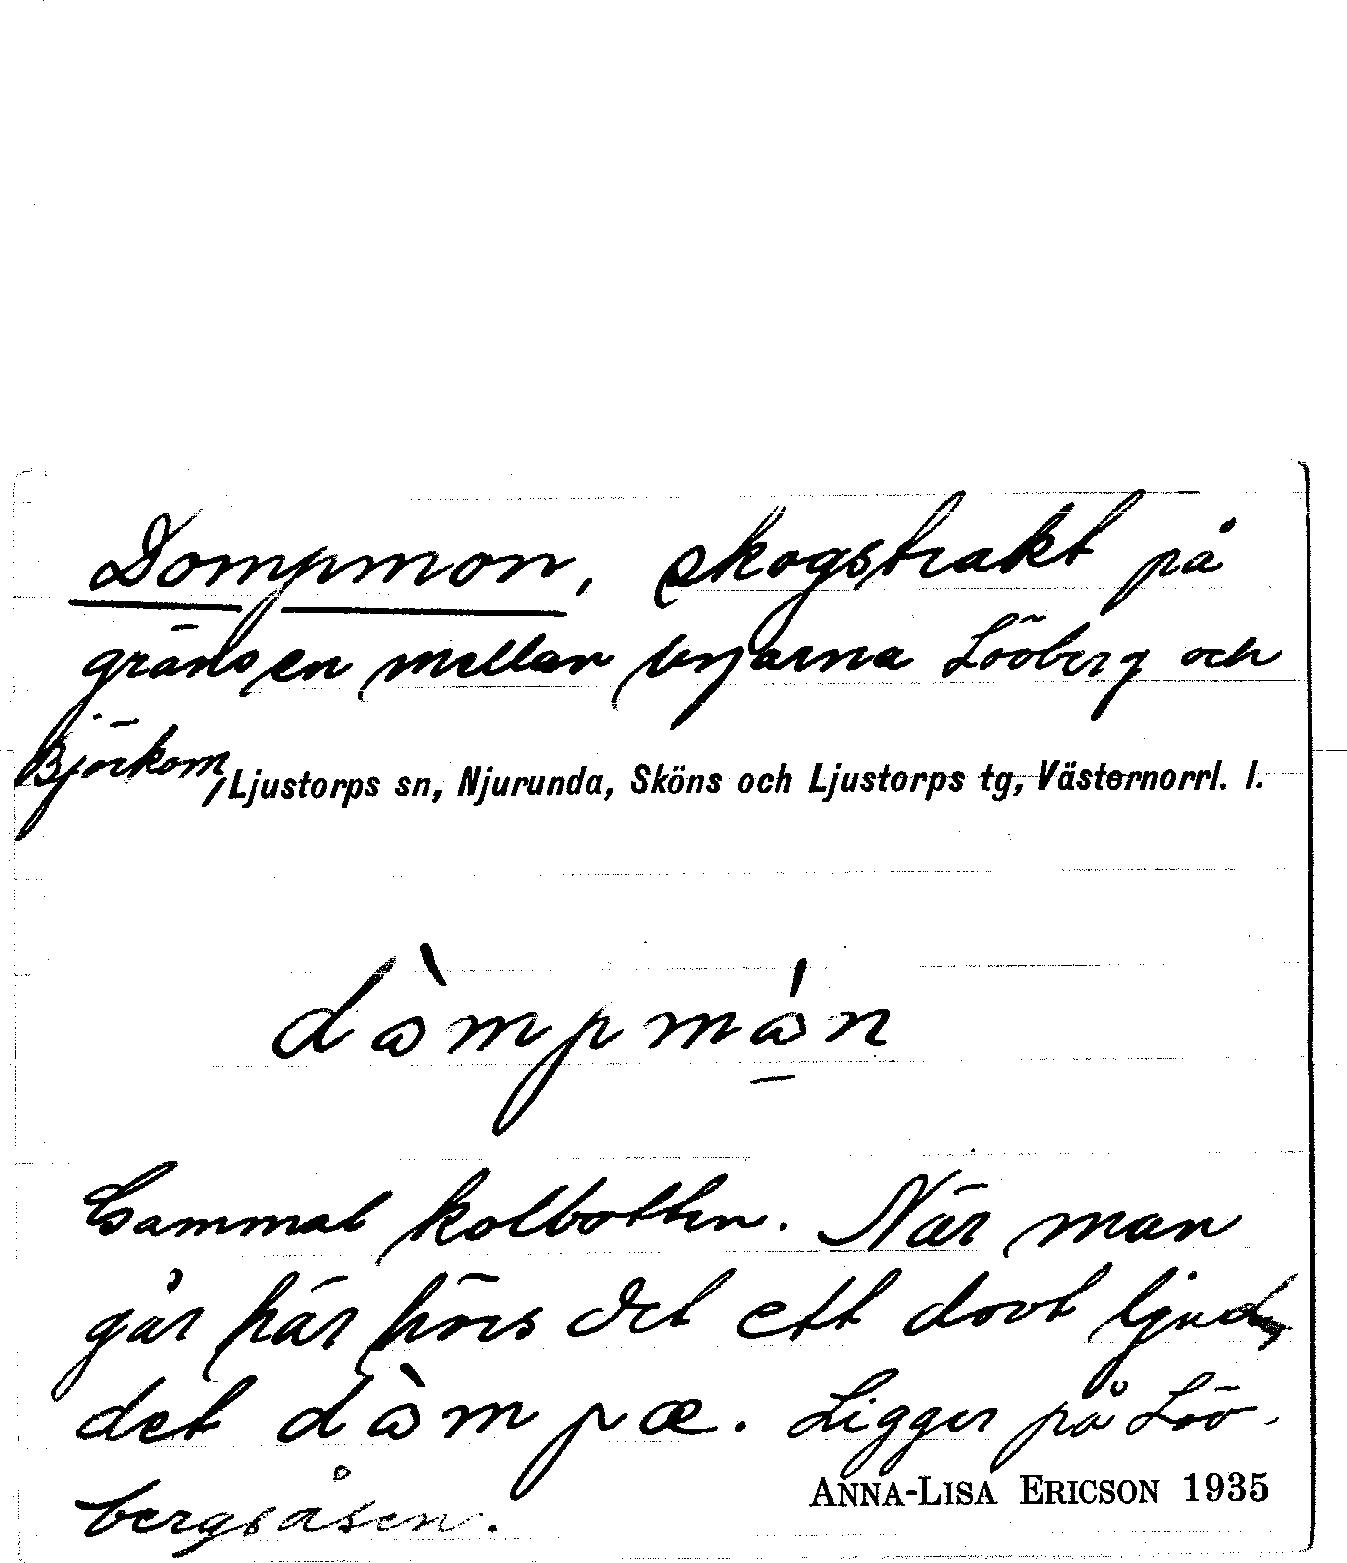 Dompmon, skogstrakt på
gränsen mellan byarna Lööberg och
Björkom, Ljustorps sn, Njurunda, Sköns och Ljustorps tg, Västernorrl. l.
dòmpmón
Gammal kolbotten. När man
går här hörs det ett dovt ljud,
det dòmpæ. Ligger på Löö-
bergsåsen.
ANNA-LISA ERICSON 1935